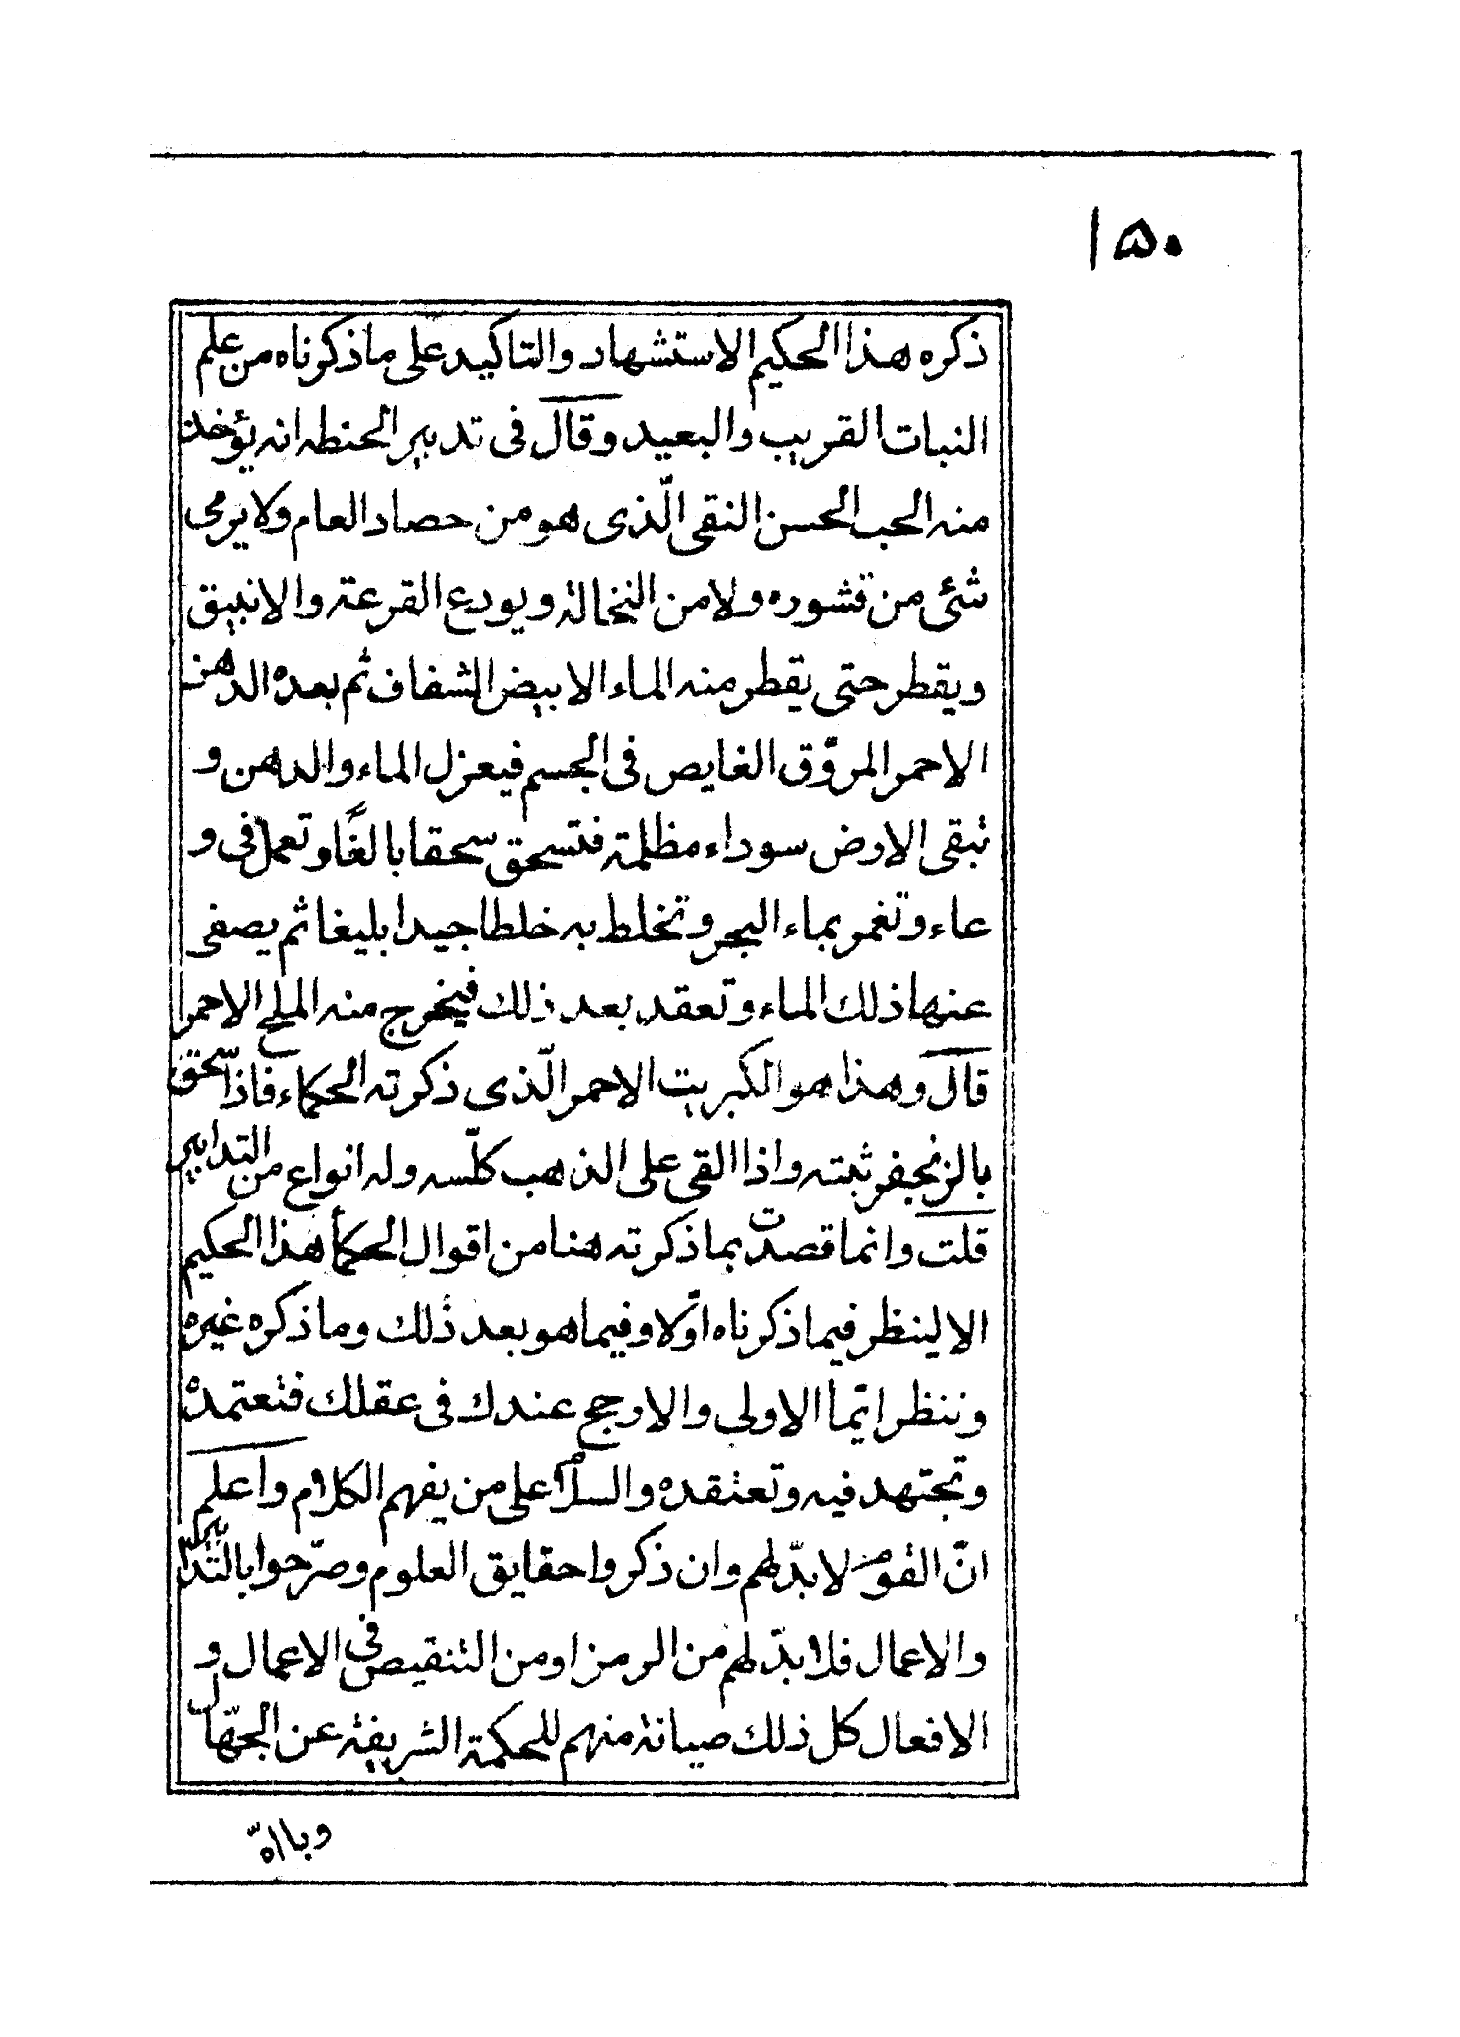 ١٥٠
ذكره هذا الحكيم الاستشهاد والتاكيد على ما ذكرناه من علم
النبات القريب والبعيد وقال فى تدبير الحنطه انه يؤخذ
منه الحب الحسن النقى الّذى هو من حصاد العام ولا يرمى
شئى من قشوره ولا من النخالة ويودع القرعة والانبيق
ويقطر حتى يقطر منه الماء الابيض الشفاف ثم بعده الدهن
الاحمر المروّق الغايص فى الجسم فيعزل الماء والدهن و
تبقى الارض سوداء مظلمة فتسحق سحقا بالغًا وتعمل فى و
عاء وتغمر بماء البحر وتخلط به خلطا جيدا بليغا ثم يصفى
عنها ذلك الماء وتعقد بعد ذلك فيخرج منه الملح الاحمر
قال وهذا هو الكبريت الاحمر الّذى ذكرته الحكماء فاذا سحق
بالزنجفر ثبته واذا القى على الذهب كلّسه وله انواع من التدابير
قلت وانما قصدت بما ذكرته هنا من اقوال الحكمأ هذا الحكيم
الا لينظر فيما ذكرناه اوّلا وفيما هو بعد ذلك وما ذكره غيره
وننظر ايّما الاولى والارجح عندك فى عقلك فتعتمده
وتجتهد فيه وتعتقده والسلام على من يفهم الكلام واعلم
انّ القوم لابدّ لهم وان ذكروا حقايق العلوم وصرّحوا بالتّدابير
والاعمال فلا بدّ لهم من الرمز او من التنقيص فى الاعمال و
الافعال كل ذلك صيانة منهم للحكمة الشريفة عن الجهّال